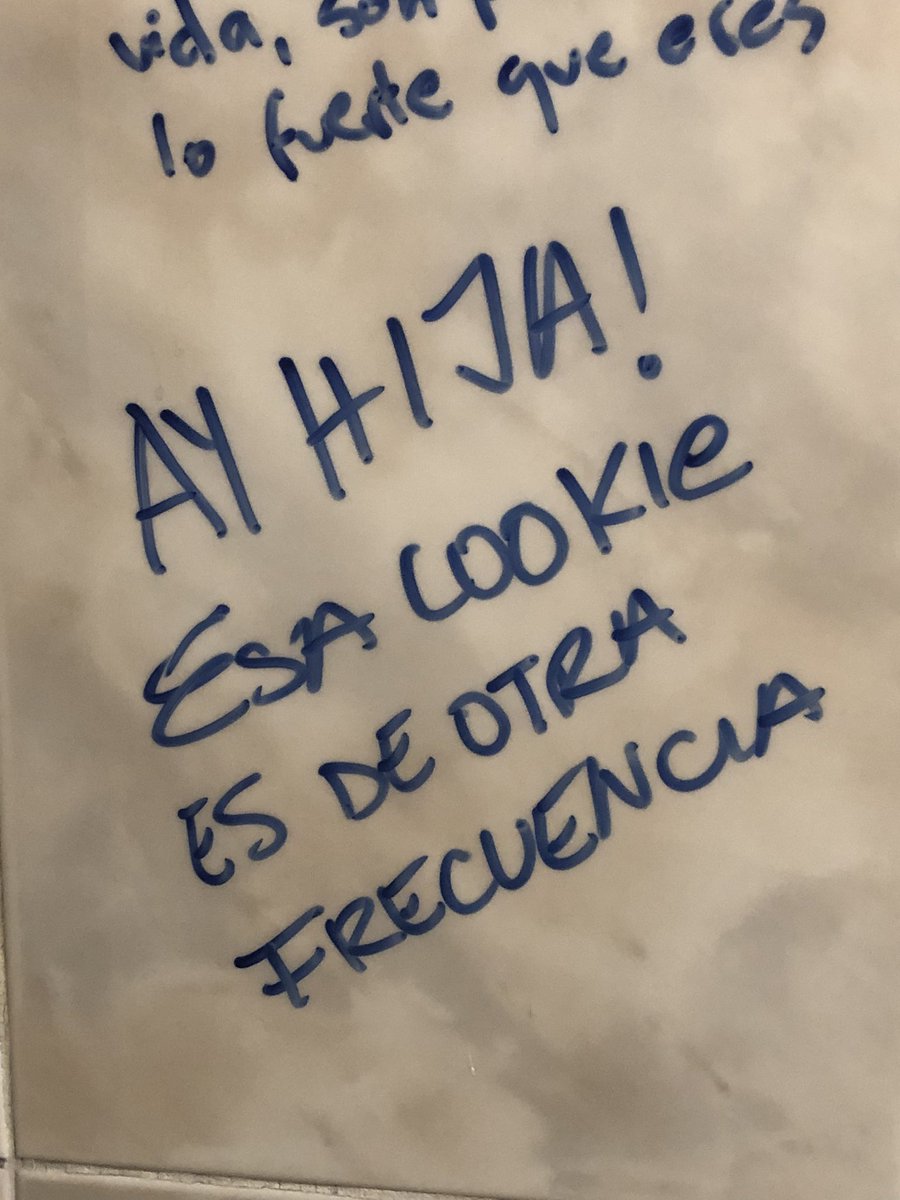 vida, son
lo fuerte que eres
AY HIJA!
ESA COOKIE
ES DE OTRA
FRECUENCIA